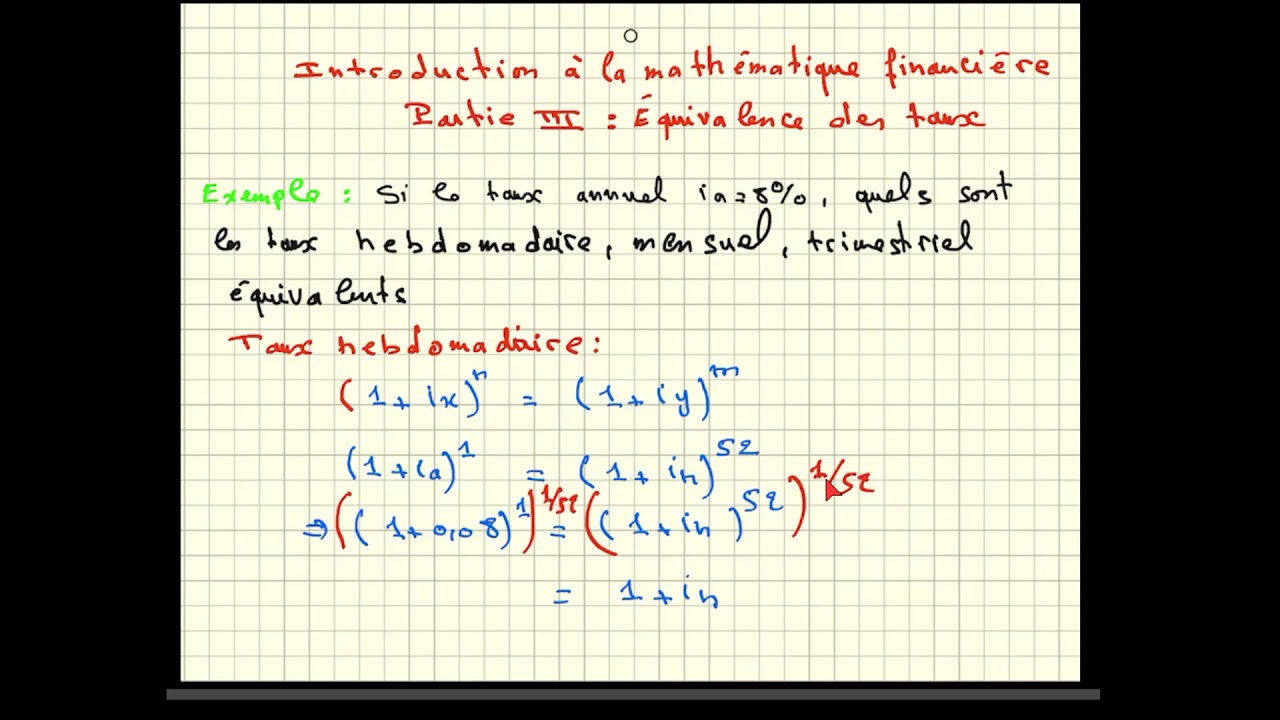 Introduction à la mathématique financière
Partie III : Équivalence des taux
Exemple : Si le taux annuel ia = 8%, quels sont
les taux hebdomadaire, mensuel, trimestriel
équivalents
Taux hebdomadaire :
(1 + ix)^n = (1 + iy)^m
(1 + ia)^1 = (1 + ih)^52
⇒ ((1 + 0,08)^1)^1/52 = ((1 + ih)^52)^1/52
= 1 + ih